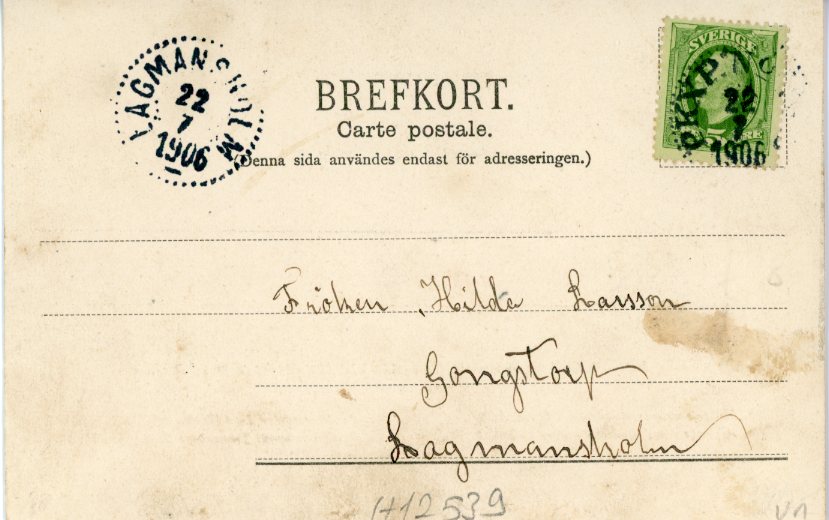 LAGMANSHOLM
22
7
1906
BREFKORT.
Carte postale.
(Denna sida användes endast för adresseringen.)
SVERIGE
22
7
1906
Fröken Hilda Larsson
Gongstorp
Lagmansholm
H12539